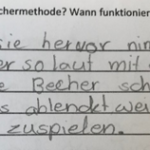 chermethode? Wann funktionier
sie hervor nin
er so laut mit
e Becher sch
s ablendet wei
zuspielen.